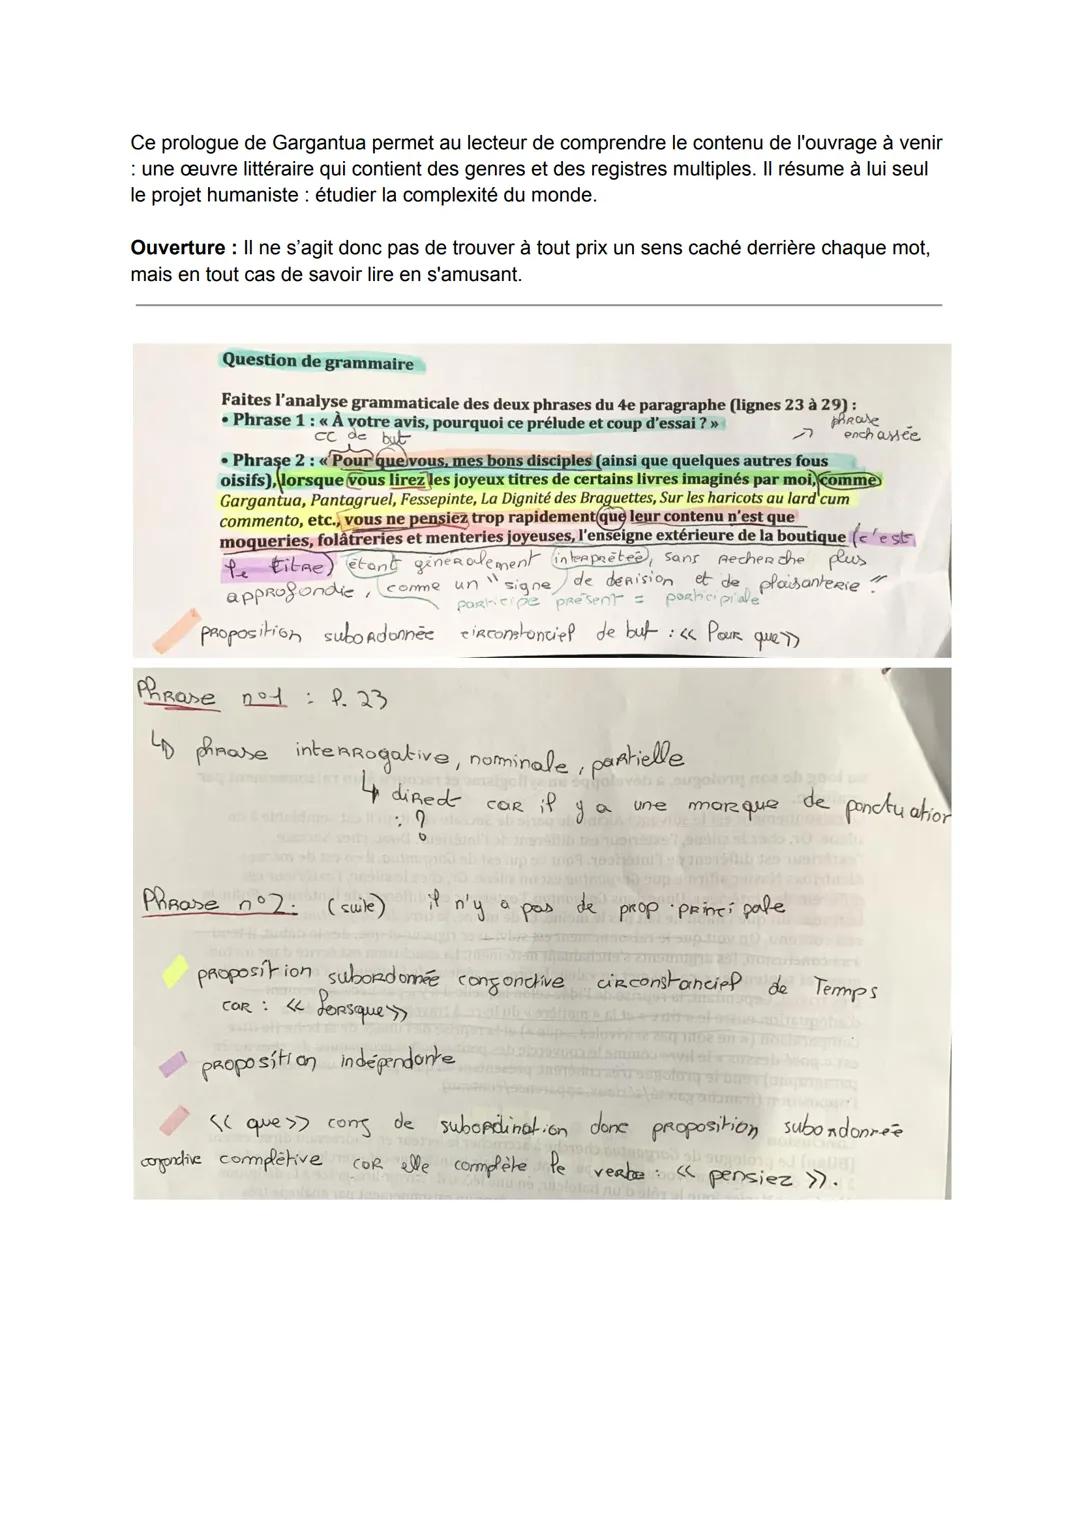 Ce prologue de Gargantua permet au lecteur de comprendre le contenu de l'ouvrage à venir
: une œuvre littéraire qui contient des genres et des registres multiples. Il résume à lui seul
le projet humaniste : étudier la complexité du monde.
Ouverture : Il ne s'agit donc pas de trouver à tout prix un sens caché derrière chaque mot,
mais en tout cas de savoir lire en s'amusant.
Question de grammaire
Faites l'analyse grammaticale des deux phrases du 4e paragraphe (lignes 23 à 29) :
• Phrase 1 : « À votre avis, pourquoi ce prélude et coup d'essai ? »
phrase
enchassée
CC de but
• Phrase 2 : « Pour que vous, mes bons disciples (ainsi que quelques autres fous
oisifs), lorsque vous lirez les joyeux titres de certains livres imaginés par moi, comme
Gargantua, Pantagruel, Fessepinte, La Dignité des Braguettes, Sur les haricots au lard cum
commento, etc., vous ne pensiez trop rapidement que leur contenu n'est que
moqueries, folâtreries et menteries joyeuses, l'enseigne extérieure de la boutique (c'est
le titre) étant généralement interprétée, sans recherche plus
approfondie, comme un "signe de dérision et de plaisanterie"
participe présent = participiale
proposition subordonnée circonstanciel de but : << Pour que >>
Phrase n°1 : l. 23
↳ phrase interrogative, nominale, partielle
↳ direct car il y a une marque de ponctuation
: ?
Phrase n°2 : (suite) il n'y a pas de prop. principale
proposition subordonnée conjonctive circonstanciel de Temps
car : << lorsque >>
proposition indépendante
<< que >> conj de subordination donc proposition subordonnée
conjonctive complétive car elle complète le verbe : << pensiez >>.